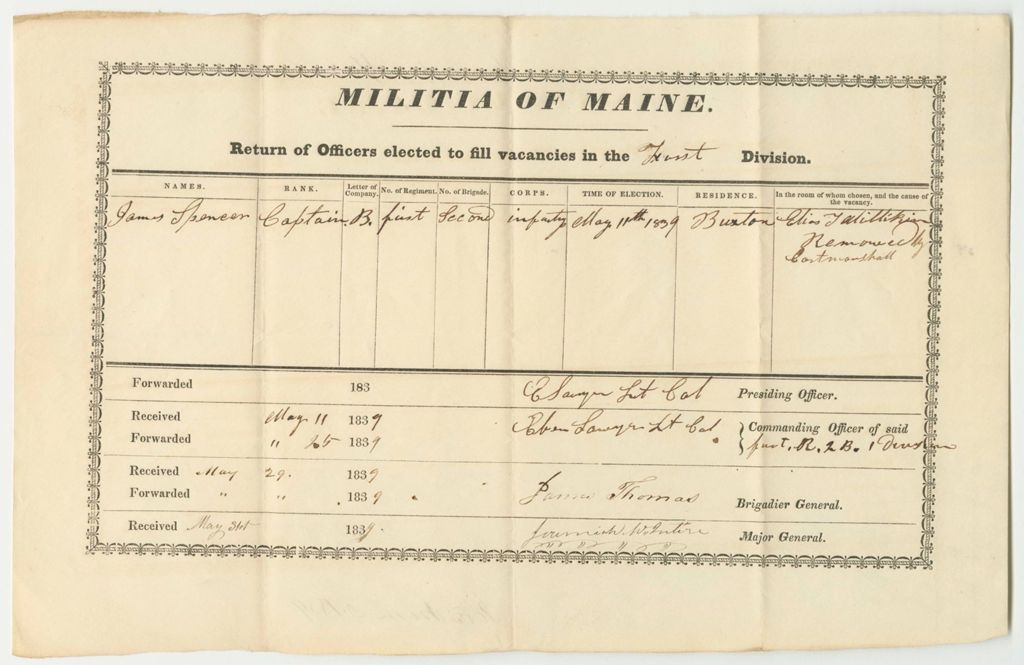 MILITIA OF MAINE.
Return of Officers elected to fill vacancies in the First Division.
NAMES. RANK. Letter of Company. No. of Regiment. No. of Brigade. CORPS. TIME OF ELECTION. RESIDENCE. In the room of whom chosen, and the cause of the vacancy.
James Spencer Captain B. first Second infantry May 11th 1839 Buxton Elias Millikin
Removed by
Cortmarshall
Forwarded 183 E Sawyer Lt Col Presiding Officer.
Received May 11 1839 Eben Sawyer Lt Col Commanding Officer of said
Forwarded " 25 1839 first. R. 2 B. 1 Division
Received May 29. 1839
Forwarded " " 1839 James Thomas Brigadier General.
Received May 31st 1839. Jeremiah Major General.